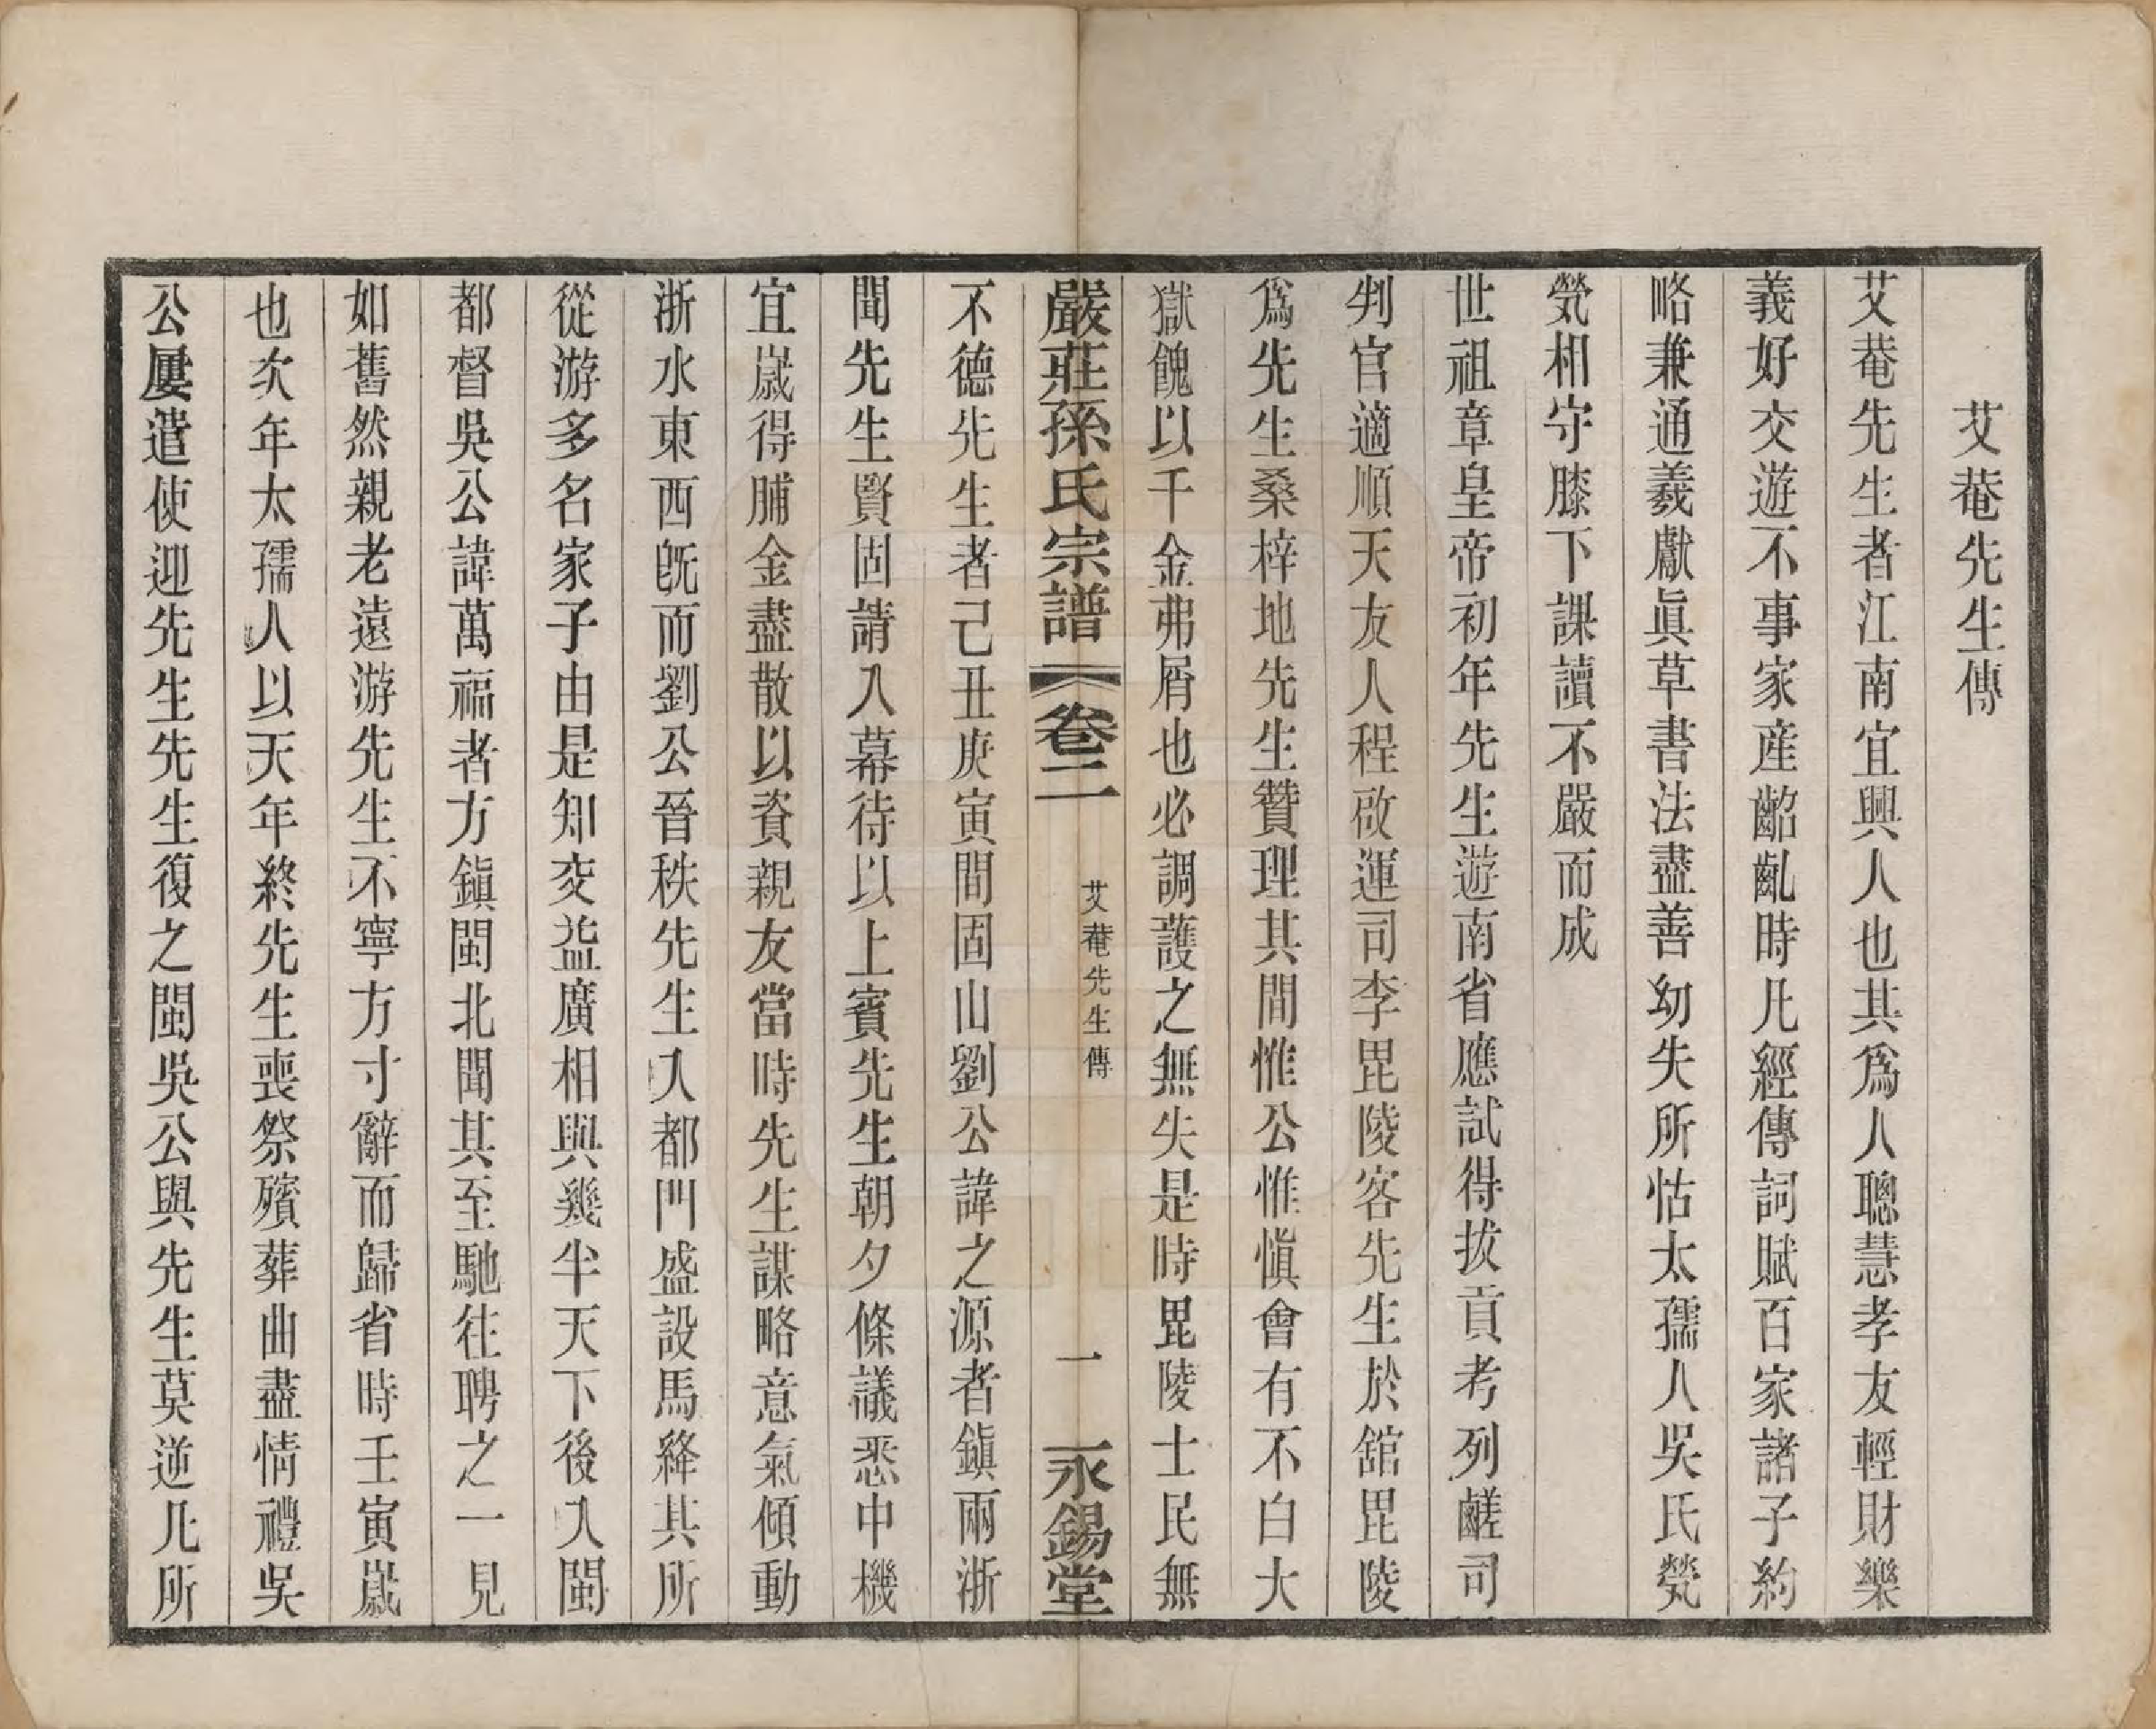 艾菴先生傳
艾菴先生者江南宜興人也其爲人聰慧孝友輕財樂
義好交遊不事家産齠齔時凡經傳詞賦百家諸子約
略兼通羲獻眞草書法盡善幼失所怙太孺人吳氏煢
煢相守膝下課讀不嚴而成
世祖章皇帝初年先生遊南省應試得拔貢考列鹺司
判官適順天友人程啟運司李毘陵客先生於舘毘陵
爲先生桑梓地先生贊理其間惟公惟愼會有不白大
獄餽以千金弗屑也必調護之無失是時毘陵士民無
嚴莊孫氏宗譜 卷二 艾菴先生傳 一 永錫堂
不德先生者己丑庚寅間固山劉公諱之源者鎭兩浙
聞先生賢固請入幕待以上賓先生朝夕條議悉中機
宜嵗得脯金盡散以資親友當時先生謀略意氣傾動
浙水東西旣而劉公晉秩先生入都門盛設馬絳其所
從游多名家子由是知交益廣相與幾半天下後入閩
都督吳公諱萬福者方鎭閩北聞其至馳往聘之一見
如舊然親老遠游先生不寧方寸辭而歸省時壬寅嵗
也次年太孺人以天年終先生喪祭殯葬曲盡情禮吳
公屢遣使迎先生先生復之閩吳公與先生莫逆凡所